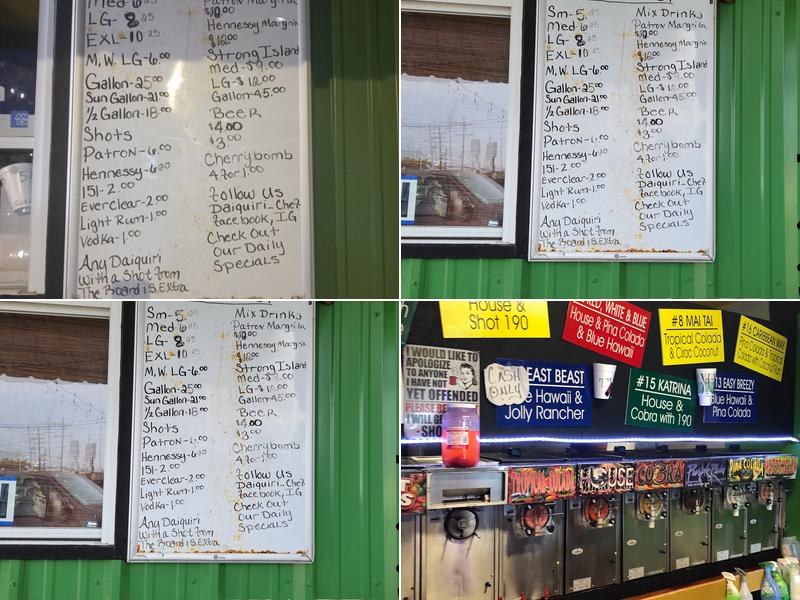 Med-6.25
LG-8.25
EXL-10.25
M,W. LG-6.00
Gallon-25.00
Sun Gallon-21.00
1/2 Gallon-18.00
Shots
Patron-6.00
Hennessy-6.00
151-2.00
Everclear-2.00
Light Rum-1.00
Vodka-1.00
Any Daiquiri
With a Shot from
The Board is Extra
Patron Margrita
$10.00
Hennessy Margrita
$10.00
Strong Island
Med-$9.00
LG-$12.00
Gallon-45.00
Beer
$4.00
$3.00
Cherrybomb
4 for 1.00
Follow Us
Daiquiri_Chez
Facebook, I.G
Check Out
Our Daily
Specials
Sm-5.25
Med-6.25
LG-8.25
EXL-10.25
M,W. LG-6.00
Gallon-25.00
Sun Gallon-21.00
1/2 Gallon-18.00
Shots
Patron-6.00
Hennessy-6.00
151-2.00
Everclear-2.00
Light Rum-1.00
Vodka-1.00
Any Daiquiri
With a Shot from
The Board is Extra
Mix Drinks
Patron Margrita
$10.00
Hennessy Margrita
$10.00
Strong Island
Med-$9.00
LG-$12.00
Gallon-45.00
Beer
$4.00
$3.00
Cherrybomb
4 for 1.00
Follow Us
Daiquiri_Chez
Facebook, I.G
Check Out
Our Daily
Specials
Sm-5.25
Med-6.25
LG-8.25
EXL-10.25
M,W. LG-6.00
Gallon-25.00
Sun Gallon-21.00
1/2 Gallon-18.00
Shots
Patron-6.00
Hennessy-6.00
151-2.00
Everclear-2.00
Light Rum-1.00
Vodka-1.00
Any Daiquiri
With a Shot from
The Board is Extra
Mix Drinks
Patron Margrita
$10.00
Hennessy Margrita
$10.00
Strong Island
Med-$9.00
LG-$12.00
Gallon-45.00
Beer
$4.00
$3.00
Cherrybomb
4 for 1.00
Follow Us
Daiquiri_Chez
Facebook, I.G
Check Out
Our Daily
Specials
House &
Shot 190
RED, WHITE & BLUE
House & Pina Colada
& Blue Hawaii
#8 MAI TAI
Tropical Colada
& Ciroc Coconut
#16 CARIBBEAN WAY
Pina Colada & Tropical
Colada with Coconut Rum
I WOULD LIKE TO
APOLOGIZE
TO ANYONE
I HAVE NOT
YET OFFENDED
PLEASE BE
I WILL GE
SHO
CASH
ONLY
EAST BEAST
Hawaii &
Jolly Rancher
#15 KATRINA
House &
Cobra with 190
13 EASY BREEZY
Blue Hawaii &
Pina Colada
HOUSE
COBRA